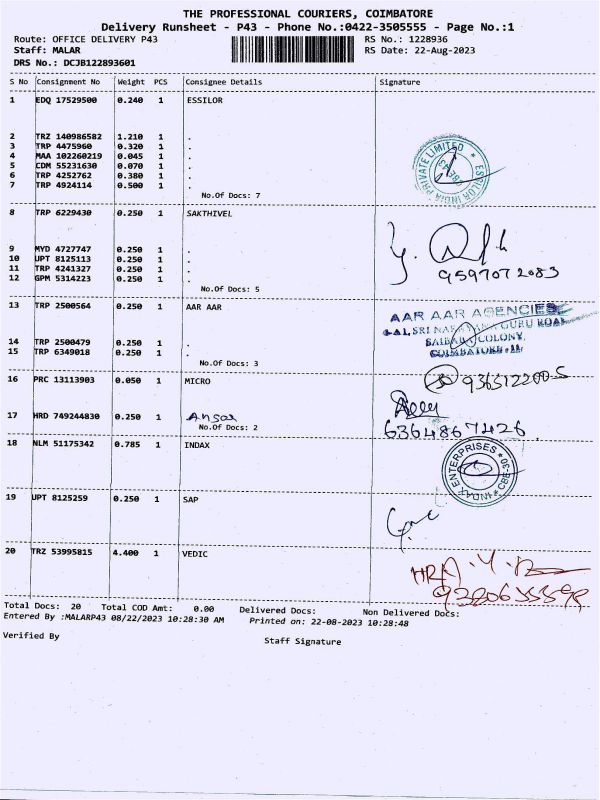 THE PROFESSIONAL COURIERS, COIMBATORE
Delivery Runsheet - P43 - Phone No.:0422-3505555 - Page No.:1
Route: OFFICE DELIVERY P43 RS No.: 1228936
Staff: MALAR RS Date: 22-Aug-2023
DRS No.: DCJB122893601
S No Consignment No Weight PCS Consignee Details Signature
1 EDQ 17529500 0.240 1 ESSILOR
2 TRZ 140986582 1.210 1 .
3 TRP 4475960 0.320 1 .
4 MAA 102260219 0.045 1 .
5 CDM 55231630 0.070 1 .
6 TRP 4252762 0.380 1 .
7 TRP 4924114 0.500 1 .
No.Of Docs: 7
ESSILOR INDIA PRIVATE LIMITED
8 TRP 6229430 0.250 1 SAKTHIVEL
9 MYD 4727747 0.250 1 .
10 UPT 8125113 0.250 1 .
11 TRP 4241327 0.250 1 .
12 GPM 5314223 0.250 1 .
No.Of Docs: 5
9597072083
13 TRP 2500564 0.250 1 AAR AAR
14 TRP 2500479 0.250 1 .
15 TRP 6349018 0.250 1 .
No.Of Docs: 3
AAR AAR AGENCIES
SAIBABA COLONY,
COIMBATORE
16 PRC 13113903 0.050 1 MICRO
9365122005
17 HRD 749244830 0.250 1 Ansar
No.Of Docs: 2
6364867426
18 NLM 51175342 0.785 1 INDAX
INDAX ENTERPRISES CBE-30
19 UPT 8125259 0.250 1 SAP
20 TRZ 53995815 4.400 1 VEDIC
Total Docs: 20 Total COD Amt: 0.00 Delivered Docs: Non Delivered Docs:
Entered By :MALARP43 08/22/2023 10:28:30 AM Printed on: 22-08-2023 10:28:48
Verified By Staff Signature